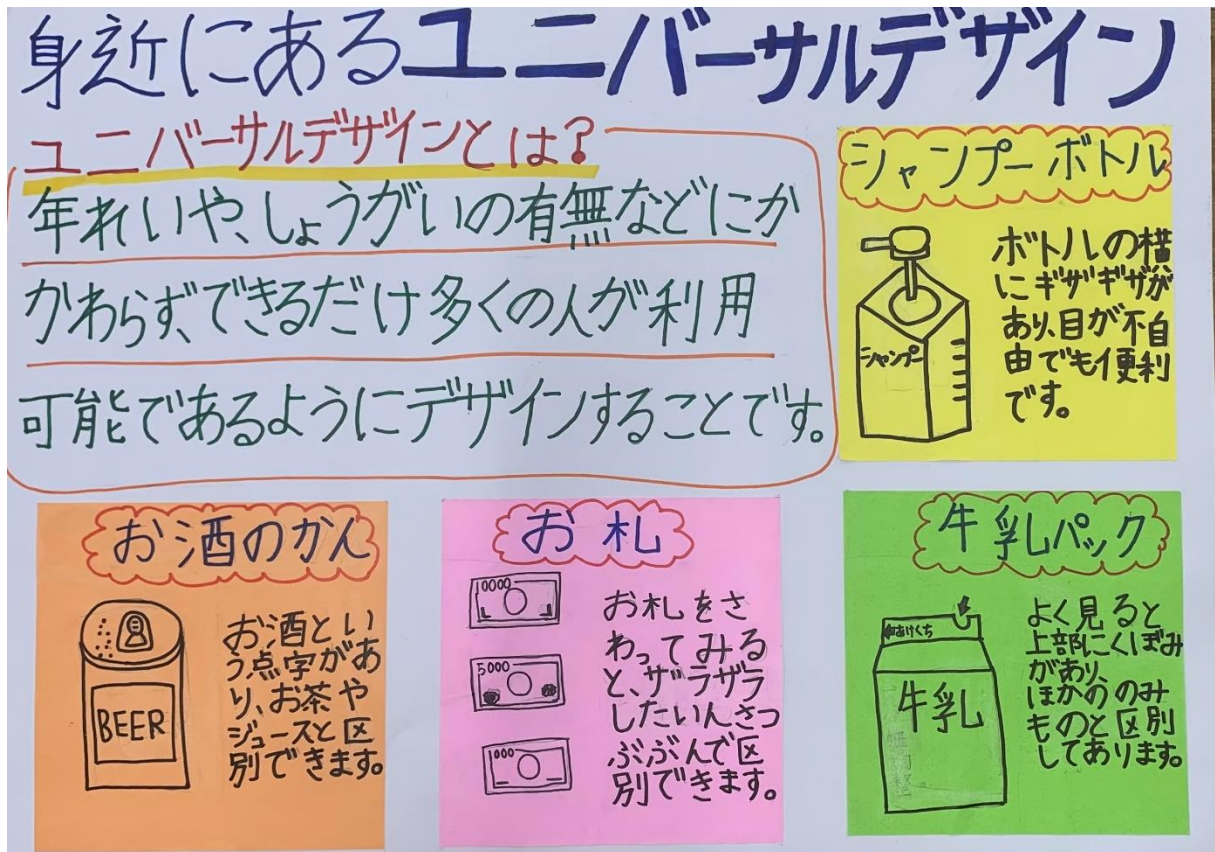 身近にあるユニバーサルデザイン
ユニバーサルデザインとは?
年れいや、しょうがいの有無などにか
かわらず、できるだけ多くの人が利用
可能であるようにデザインすることです。
シャンプーボトル
シャンプー
ボトルの横
にギザギザが
あり、目が不自
由でも便利
です。
お酒のかん
BEER
お酒とい
う点字があ
り、お茶や
ジュースと区
別できます。
お札
10000
5000
1000
お札をさ
わってみる
と、ザラザラ
したいんさつ
ぶぶんで区
別できます。
牛乳パック
あけくち
牛乳
よく見ると
上部にくぼみ
があり、
ほかののみ
ものと区別
してあります。